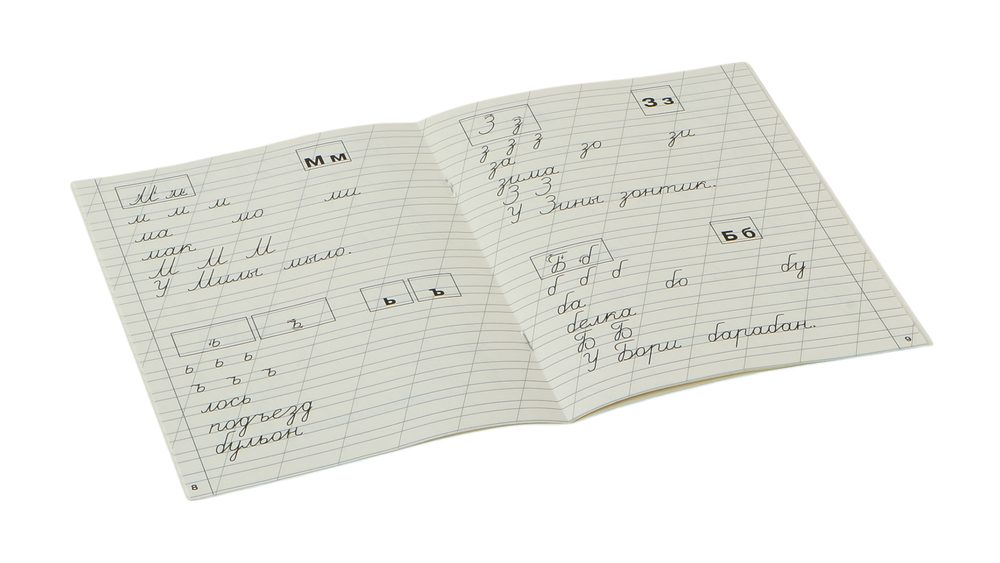 М м
М м
м м м
ма мо ми
мак
М М М
У Милы мыло.
ь ъ
ь ъ
ь ь ь
ъ ъ ъ
лось
подъезд
бульон
8
З з
З з
з з з
за зо зи
зима
З З
У Зины зонтик.
Б б
Б б
б б б
ба бо бу
белка
Б Б
У Бори барабан.
9